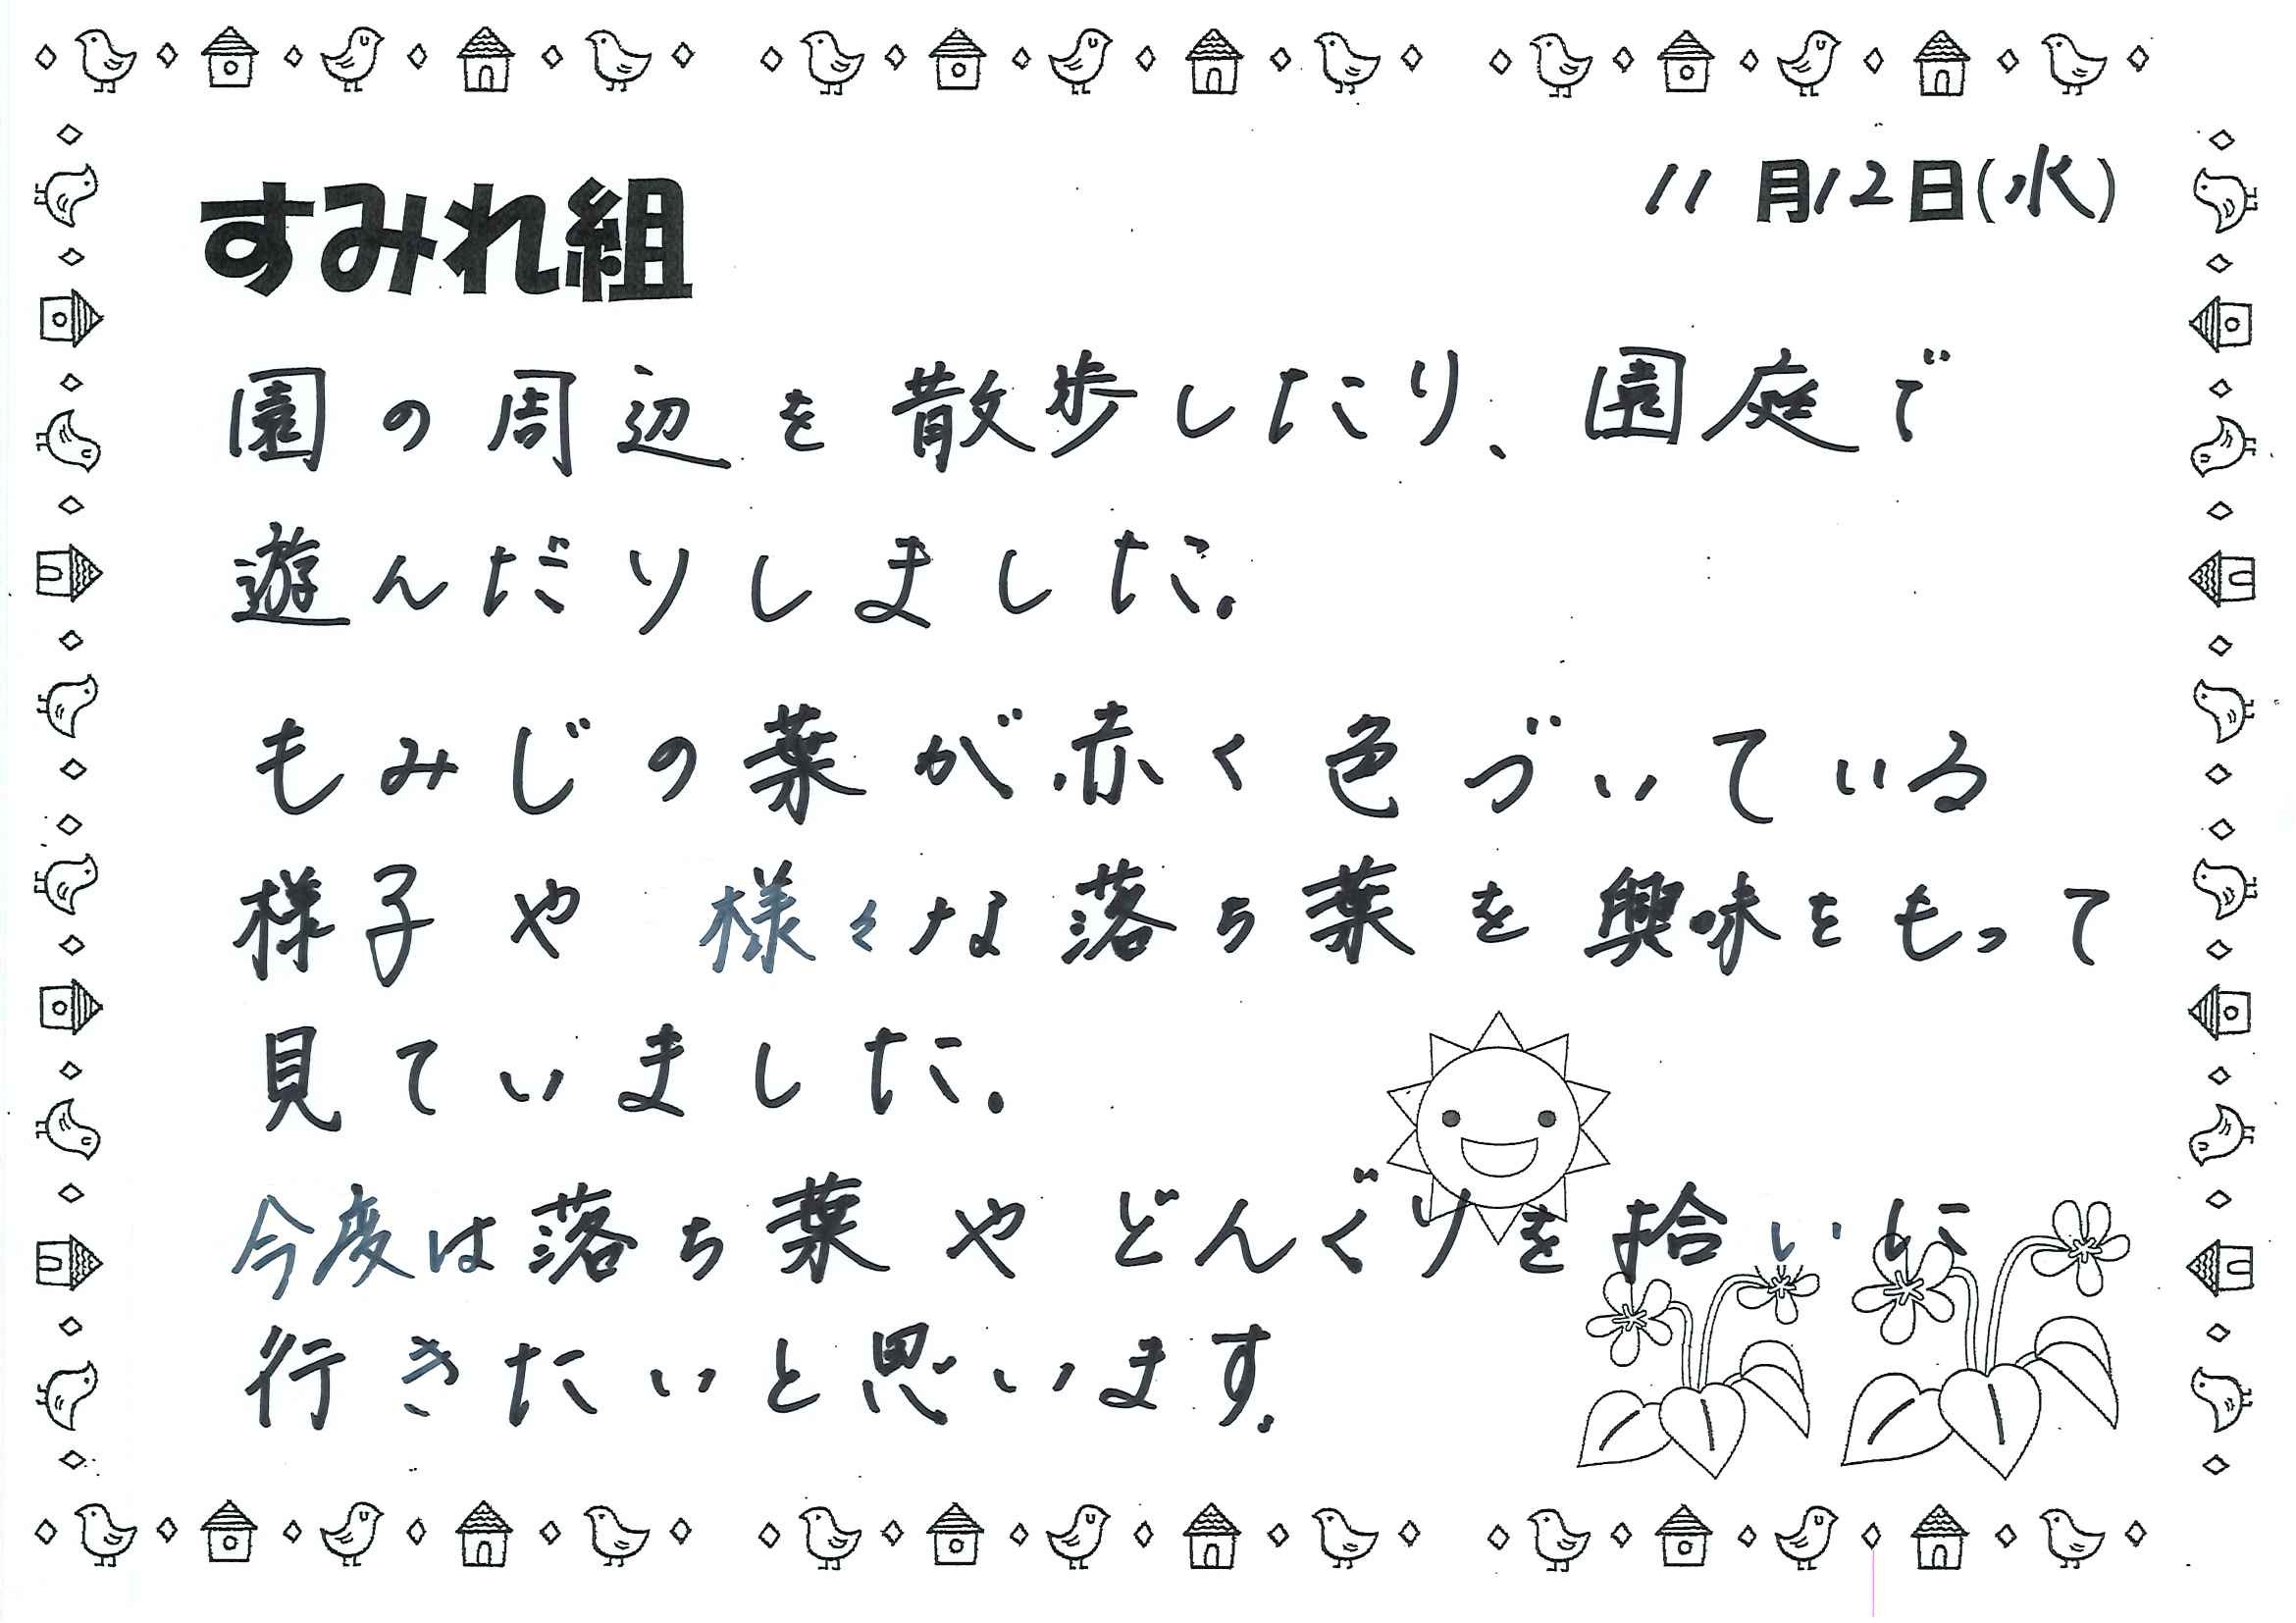 11月12日(水)
すみれ組
園の周辺を散歩したり、園庭で
遊んだりしました。
もみじの葉が赤く色づいている
様子や様々な落ち葉を興味をもって
見ていました。
今度は落ち葉やどんぐりを拾いに
行きたいと思います。